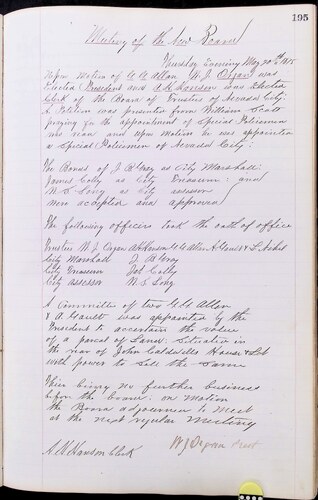 195
Meeting of the New Board
Thursday Evening May 20th 1875
Upon Motion of G A Allan W. J. Organ was
Elected President and A H Hanson was Elected
Clerk of the Board of Trustees of Nevada City.
A Petition was presented from William Scott
praying for the appointment of Special Policeman
was read and upon motion he was appointed
a Special Policeman of Nevada City.
The Bonds of J. B Gray as City Marshall
James Colly as City Treasurer and
N. S. Long as City assessor
were accepted and approved
The following officers took the oath of office
Trustees W. J. Organ A H Hanson G A Allan A. Gault & L.
City Marshall J. B Gray
City Treasurer Jas Colly
City Assessor N. S Long
A Committee of two G A Allan
& A Gault was appointed by the
President to ascertain the value
of a parcel of Land, Situated in
the rear of John Caldwells House & Lot
with power to Sell the Same
There being no further business
before the board on motion
the Board adjourned to Meet
at the next regular Meeting
A. H. Hanson Clerk W J Organ Prest